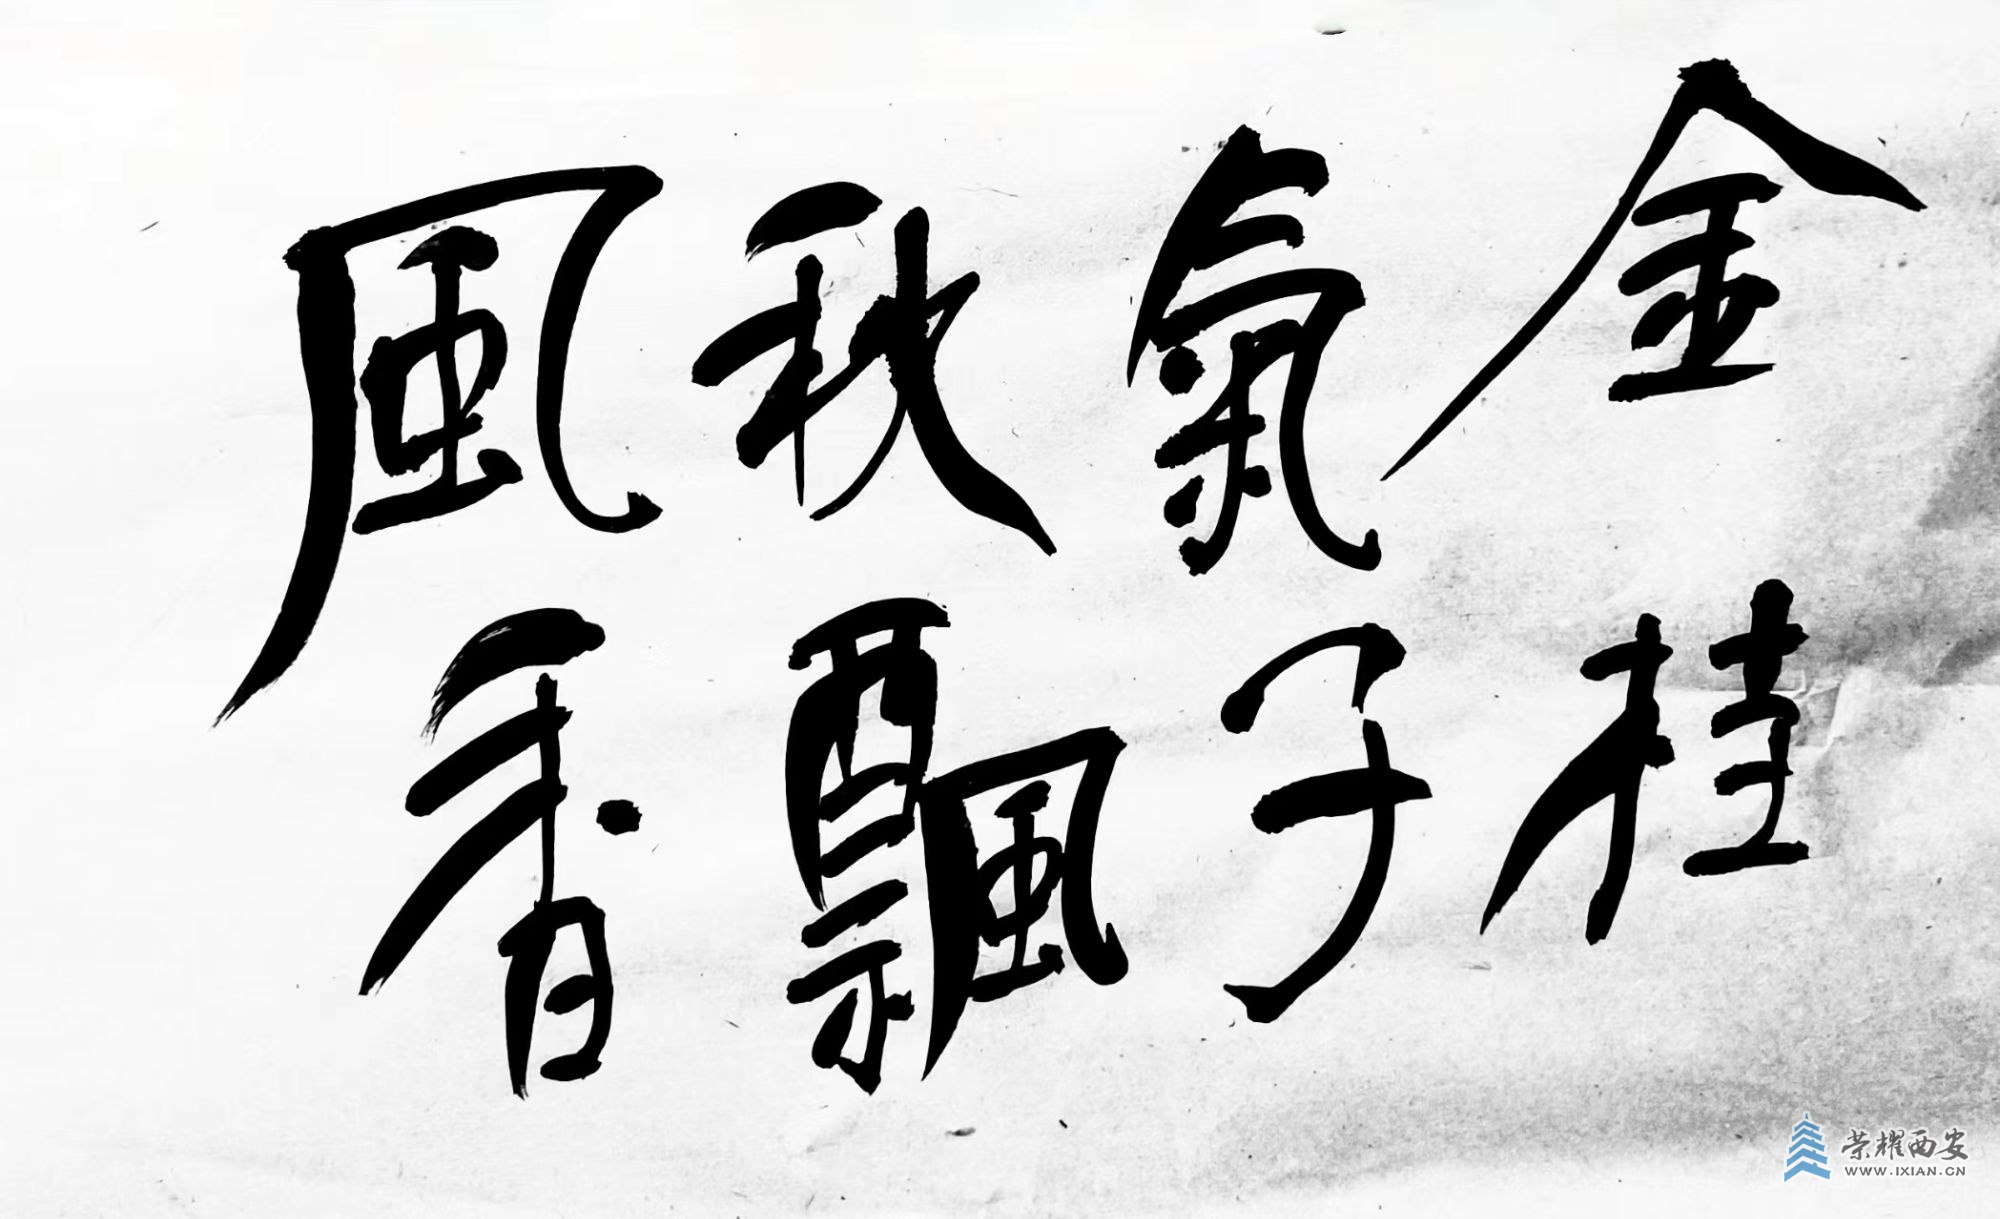 金氣秋風
桂子飄香
荣耀西安
WWW.IXIAN.CN